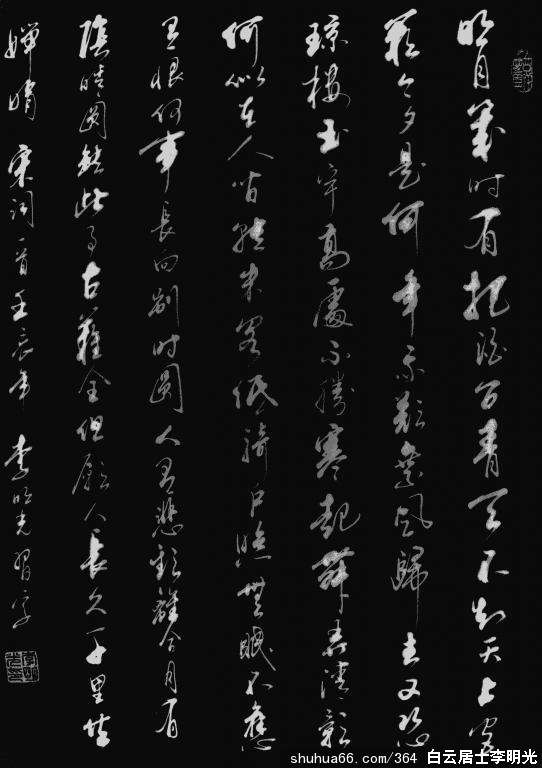 明月幾时有把酒问青天不知天上宮
阙今夕是何年我欲乘风歸去又恐
琼楼玉宇高處不勝寒起舞弄清影
何似在人间转朱阁低绮户照無眠不應
有恨何事長向别时圆人有悲歡離合月有
陰晴圆缺此事古難全但願人長久千里共
嬋娟 宋词一首壬辰年 李明光習字
shuhua66.com/364 白云居士李明光